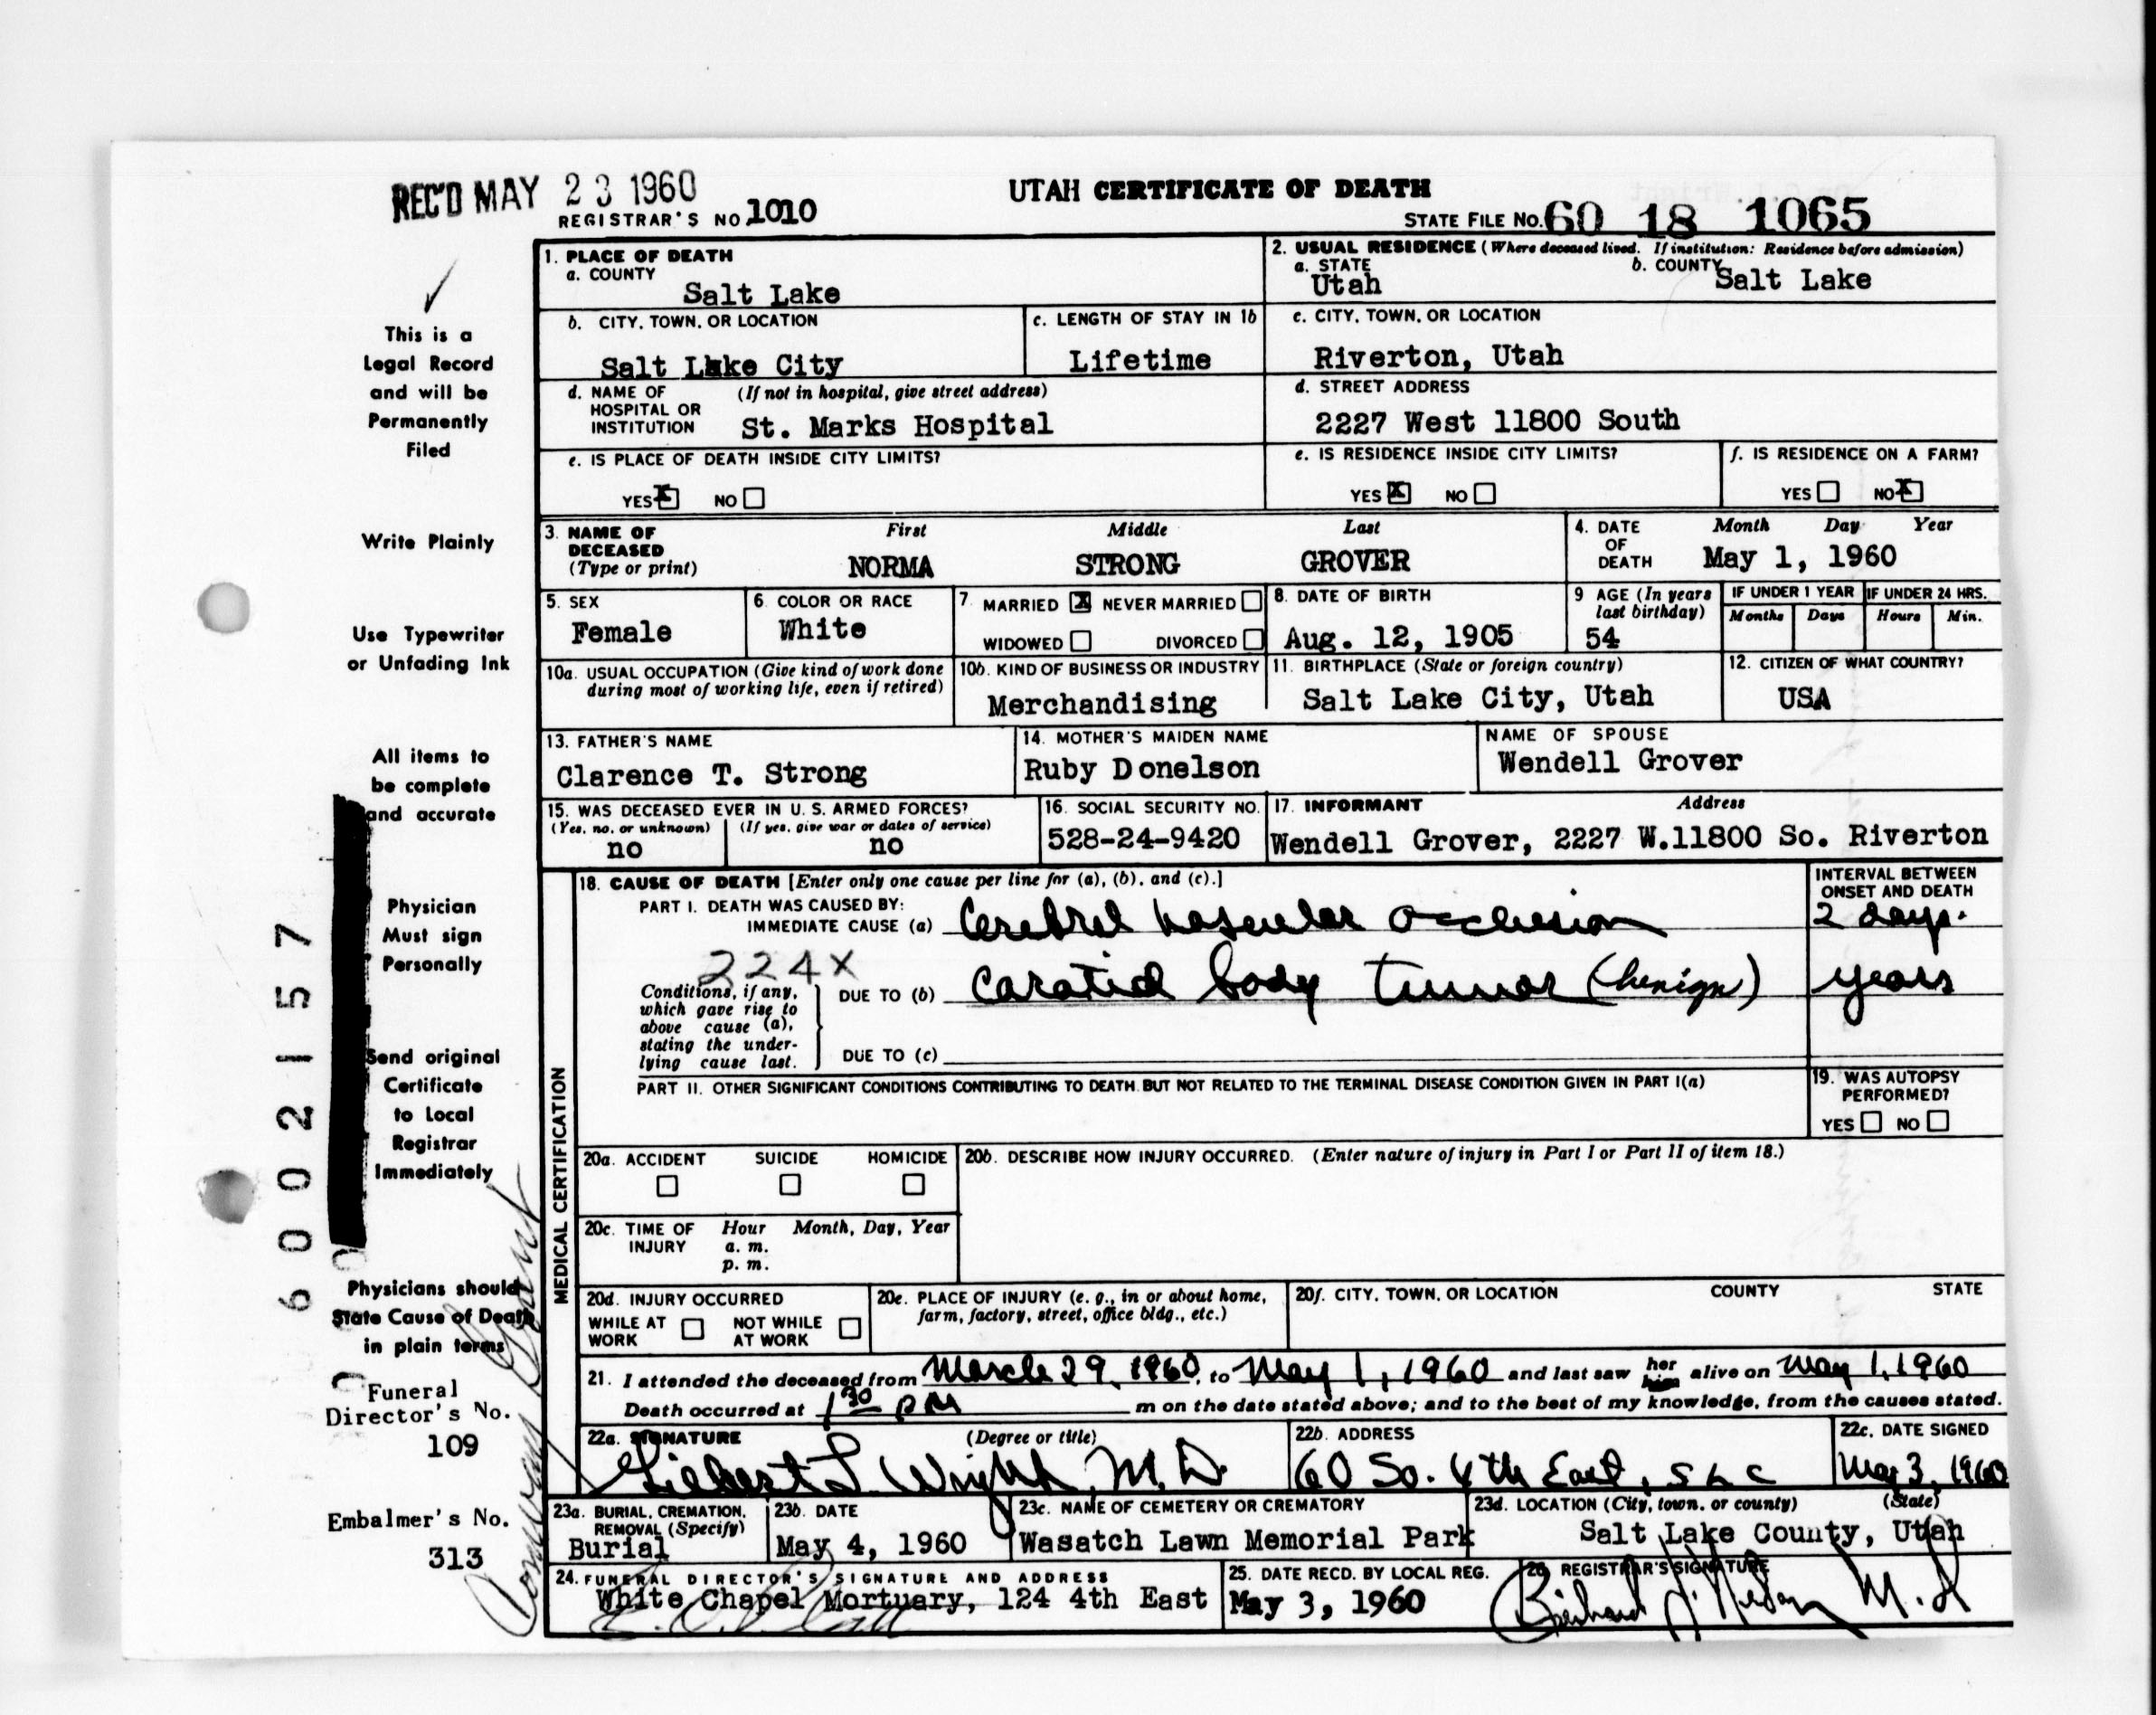 REC'D MAY 23 1960
UTAH CERTIFICATE OF DEATH
REGISTRAR'S NO. 1010
STATE FILE NO. 60 18 1065
1. PLACE OF DEATH
a. COUNTY
Salt Lake
2. USUAL RESIDENCE (Where deceased lived. If institution: Residence before admission)
a. STATE Utah
b. COUNTY Salt Lake
b. CITY, TOWN, OR LOCATION
Salt Lake City
c. LENGTH OF STAY IN 1b
Lifetime
c. CITY, TOWN, OR LOCATION
Riverton, Utah
d. NAME OF HOSPITAL OR INSTITUTION (If not in hospital, give street address)
St. Marks Hospital
d. STREET ADDRESS
2227 West 11800 South
e. IS PLACE OF DEATH INSIDE CITY LIMITS?
YES X NO
e. IS RESIDENCE INSIDE CITY LIMITS?
YES X NO
f. IS RESIDENCE ON A FARM?
YES NO X
3. NAME OF DECEASED (Type or print)
First Middle Last
NORMA STRONG GROVER
4. DATE OF DEATH Month Day Year
May 1, 1960
5. SEX
Female
6. COLOR OR RACE
White
7. MARRIED X NEVER MARRIED
WIDOWED DIVORCED
8. DATE OF BIRTH
Aug. 12, 1905
9 AGE (In years last birthday)
54
IF UNDER 1 YEAR IF UNDER 24 HRS.
Months Days Hours Min.
10a. USUAL OCCUPATION (Give kind of work done during most of working life, even if retired)
10b. KIND OF BUSINESS OR INDUSTRY
Merchandising
11. BIRTHPLACE (State or foreign country)
Salt Lake City, Utah
12. CITIZEN OF WHAT COUNTRY?
USA
13. FATHER'S NAME
Clarence T. Strong
14. MOTHER'S MAIDEN NAME
Ruby Donelson
NAME OF SPOUSE
Wendell Grover
15. WAS DECEASED EVER IN U.S. ARMED FORCES?
(Yes, no, or unknown) (If yes, give war or dates of service)
no no
16. SOCIAL SECURITY NO.
528-24-9420
17. INFORMANT Address
Wendell Grover, 2227 W.11800 So. Riverton
MEDICAL CERTIFICATION
18. CAUSE OF DEATH [Enter only one cause per line for (a), (b), and (c).]
INTERVAL BETWEEN ONSET AND DEATH
PART I. DEATH WAS CAUSED BY:
IMMEDIATE CAUSE (a) Cerebral Vascular Occlusion 2 days.
224X
Conditions, if any, which gave rise to above cause (a), stating the underlying cause last.
DUE TO (b) Caratid body tumor (benign) years
DUE TO (c)
PART II. OTHER SIGNIFICANT CONDITIONS CONTRIBUTING TO DEATH BUT NOT RELATED TO THE TERMINAL DISEASE CONDITION GIVEN IN PART I(a)
19. WAS AUTOPSY PERFORMED?
YES NO
20a. ACCIDENT SUICIDE HOMICIDE
20b. DESCRIBE HOW INJURY OCCURRED. (Enter nature of injury in Part I or Part II of item 18.)
20c. TIME OF INJURY Hour Month, Day, Year
a. m.
p. m.
20d. INJURY OCCURRED
WHILE AT WORK NOT WHILE AT WORK
20e. PLACE OF INJURY (e. g., in or about home, farm, factory, street, office bldg., etc.)
20f. CITY, TOWN, OR LOCATION COUNTY STATE
21. I attended the deceased from March 29, 1960, to May 1, 1960 and last saw her him alive on May 1, 1960
Death occurred at 1 30 PM m on the date stated above; and to the best of my knowledge, from the causes stated.
22a. SIGNATURE (Degree or title)
Gilbert L. Wright, M.D.
22b. ADDRESS
60 So. 4th East, SLC
22c. DATE SIGNED
May 3, 1960
23a. BURIAL, CREMATION, REMOVAL (Specify)
Burial
23b. DATE
May 4, 1960
23c. NAME OF CEMETERY OR CREMATORY
Wasatch Lawn Memorial Park
23d. LOCATION (City, town, or county) (State)
Salt Lake County, Utah
24. FUNERAL DIRECTOR'S SIGNATURE AND ADDRESS
White Chapel Mortuary, 124 4th East
25. DATE RECD. BY LOCAL REG.
May 3, 1960
26. REGISTRAR'S SIGNATURE
M.D
This is a
Legal Record
and will be
Permanently
Filed
Write Plainly
Use Typewriter
or Unfading Ink
All items to
be complete
and accurate
Physician
Must sign
Personally
Send original
Certificate
to Local
Registrar
Immediately
Physicians should
State Cause of Death
in plain terms
Funeral
Director's No.
109
Embalmer's No.
313
6002157